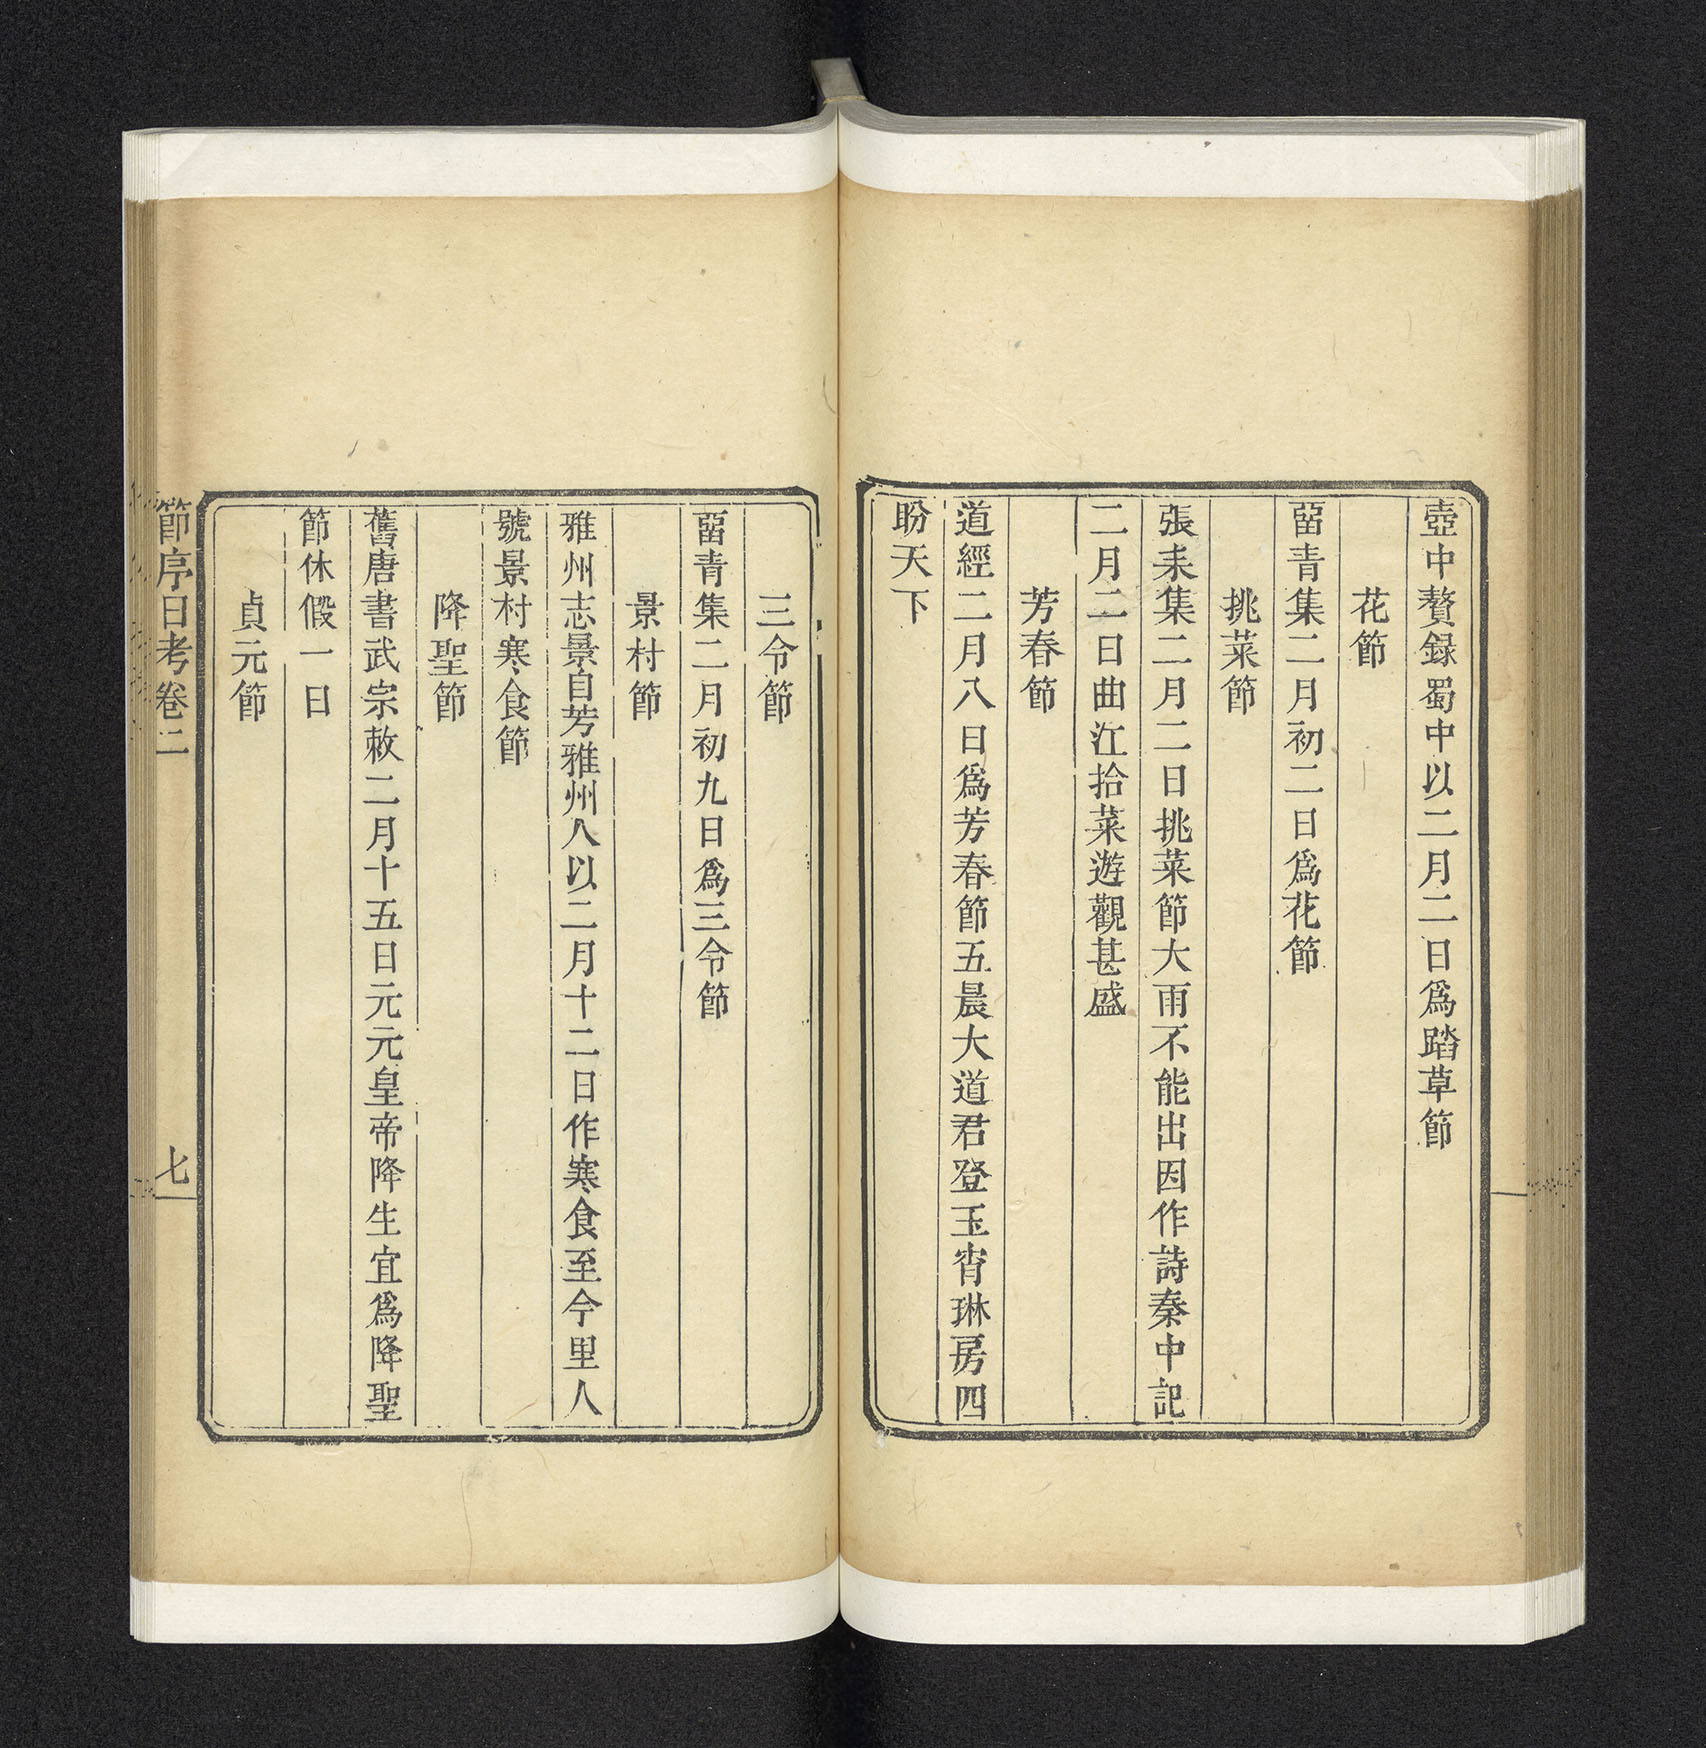 壺中贅録蜀中以二月二日爲踏草節
花節
畱青集二月初二日爲花節
挑菜節
張耒集二月二日挑菜節大雨不能出因作詩秦中記
二月二日曲江拾菜遊觀甚盛
芳春節
道經二月八日爲芳春節五晨大道君登玉宵琳房四
盼天下
三令節
畱青集二月初九日爲三令節
景村節
雅州志景自芳雅州人以二月十二日作寒食至今里人
號景村寒食節
降聖節
舊唐書武宗敕二月十五日元元皇帝降生宜爲降聖
節休假一日
貞元節
節序日考卷二
七